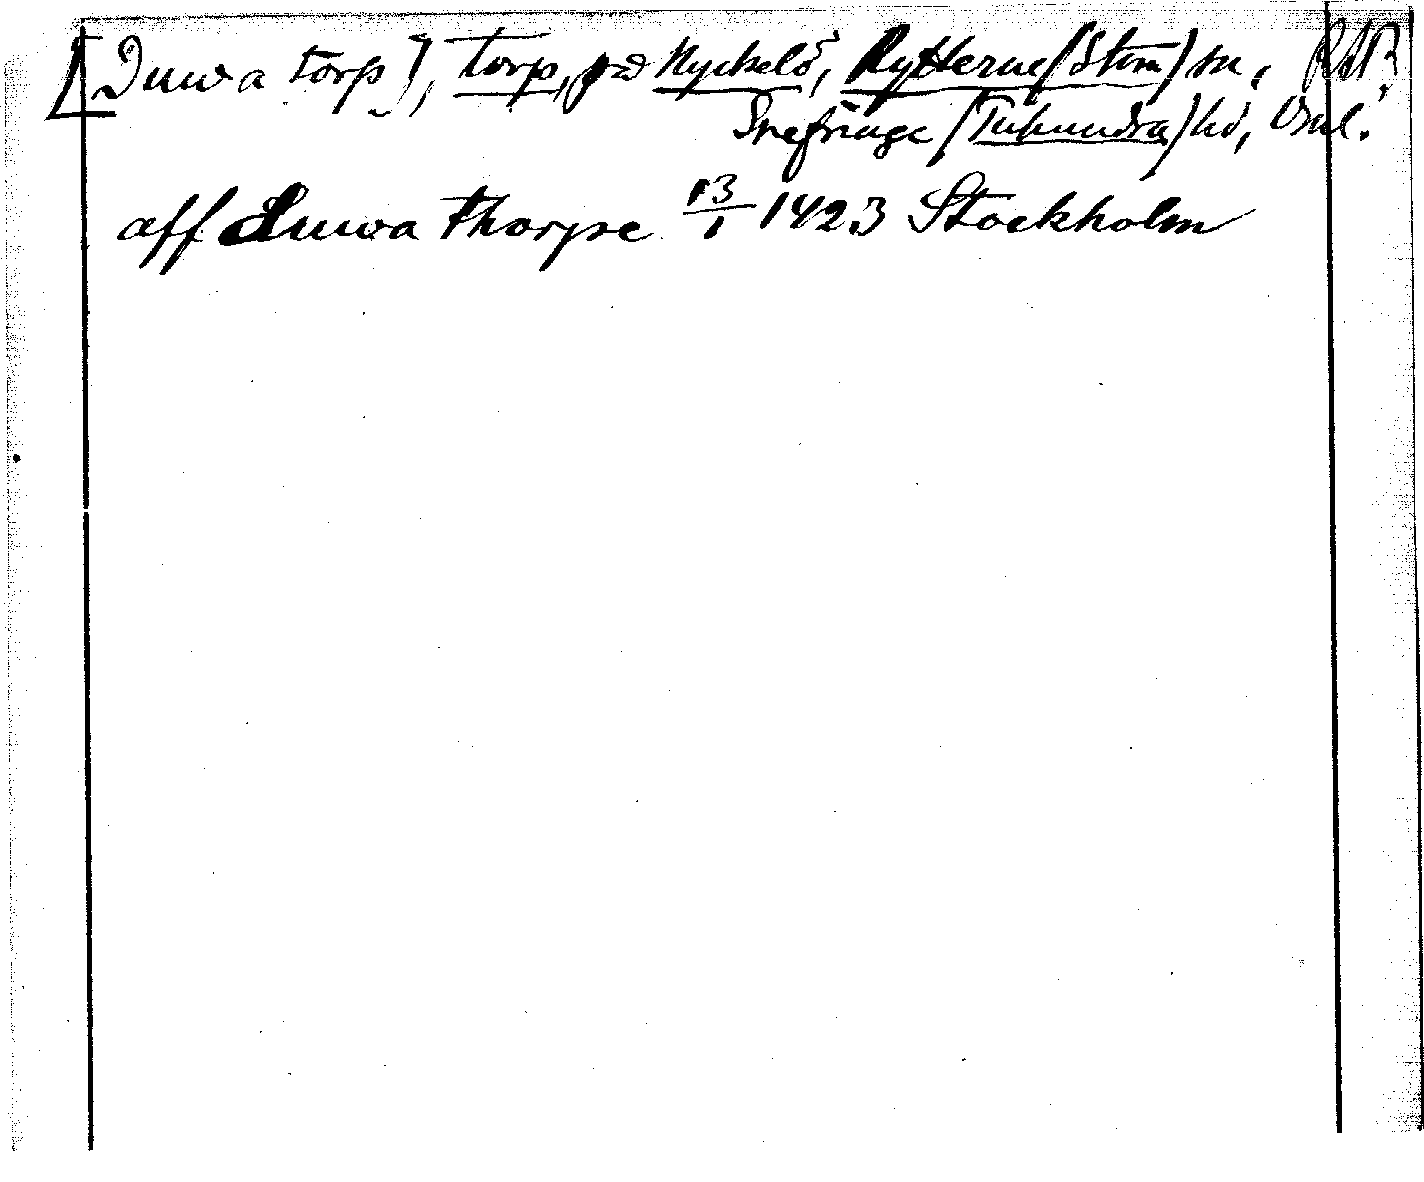 [Duwa torp], torp, på Nyckelö, Rytterne (Stora) sn, RAP
Snefringe (Tuhundra) hd, Vsml.
aff duwa thorpe 13/1 1423 Stockholm